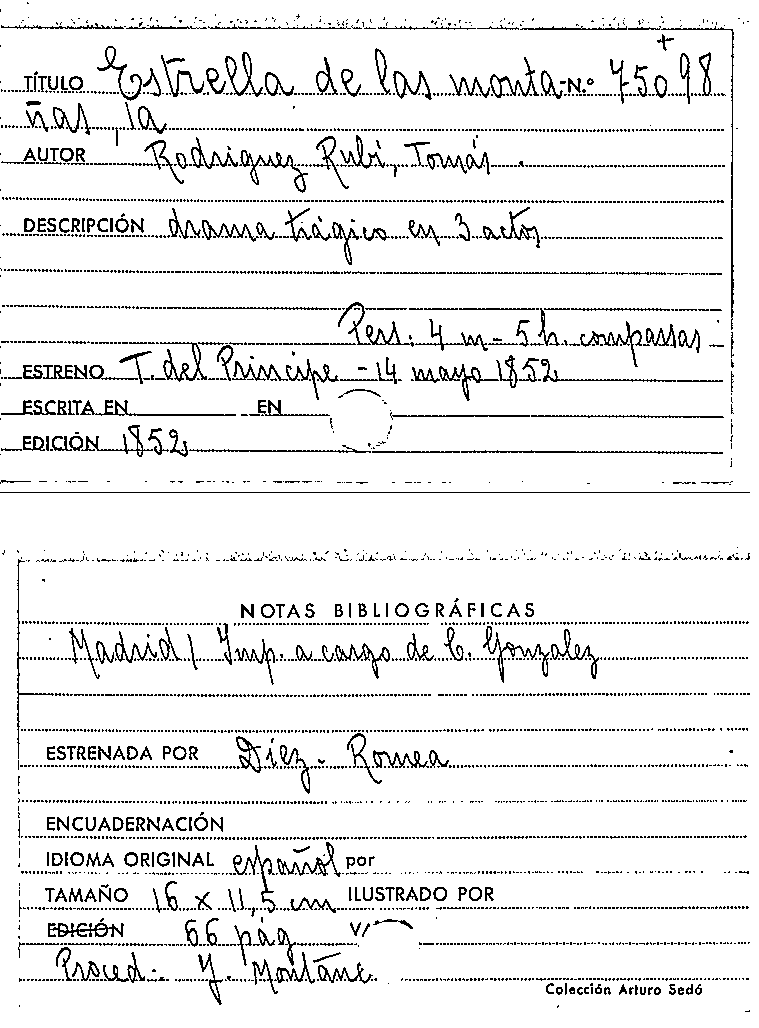 TÍTULO Estrella de las monta- N.º 75098 +
ñas, la
AUTOR Rodriguez Rubí, Tomás.
DESCRIPCIÓN drama trágico en 3 actos
Pers: 4 m - 5 h. comparsas
ESTRENO T. del Principe - 14 mayo 1852
ESCRITA EN EN
EDICIÓN 1852
NOTAS BIBLIOGRÁFICAS
Madrid / Imp. a cargo de C. Gonzalez
ESTRENADA POR Díez - Romea
ENCUADERNACIÓN
IDIOMA ORIGINAL español por
TAMAÑO 16 x 11,5 cm ILUSTRADO POR
EDICIÓN 66 pág V/
Proced.- J. Montane
Colección Arturo Sedó